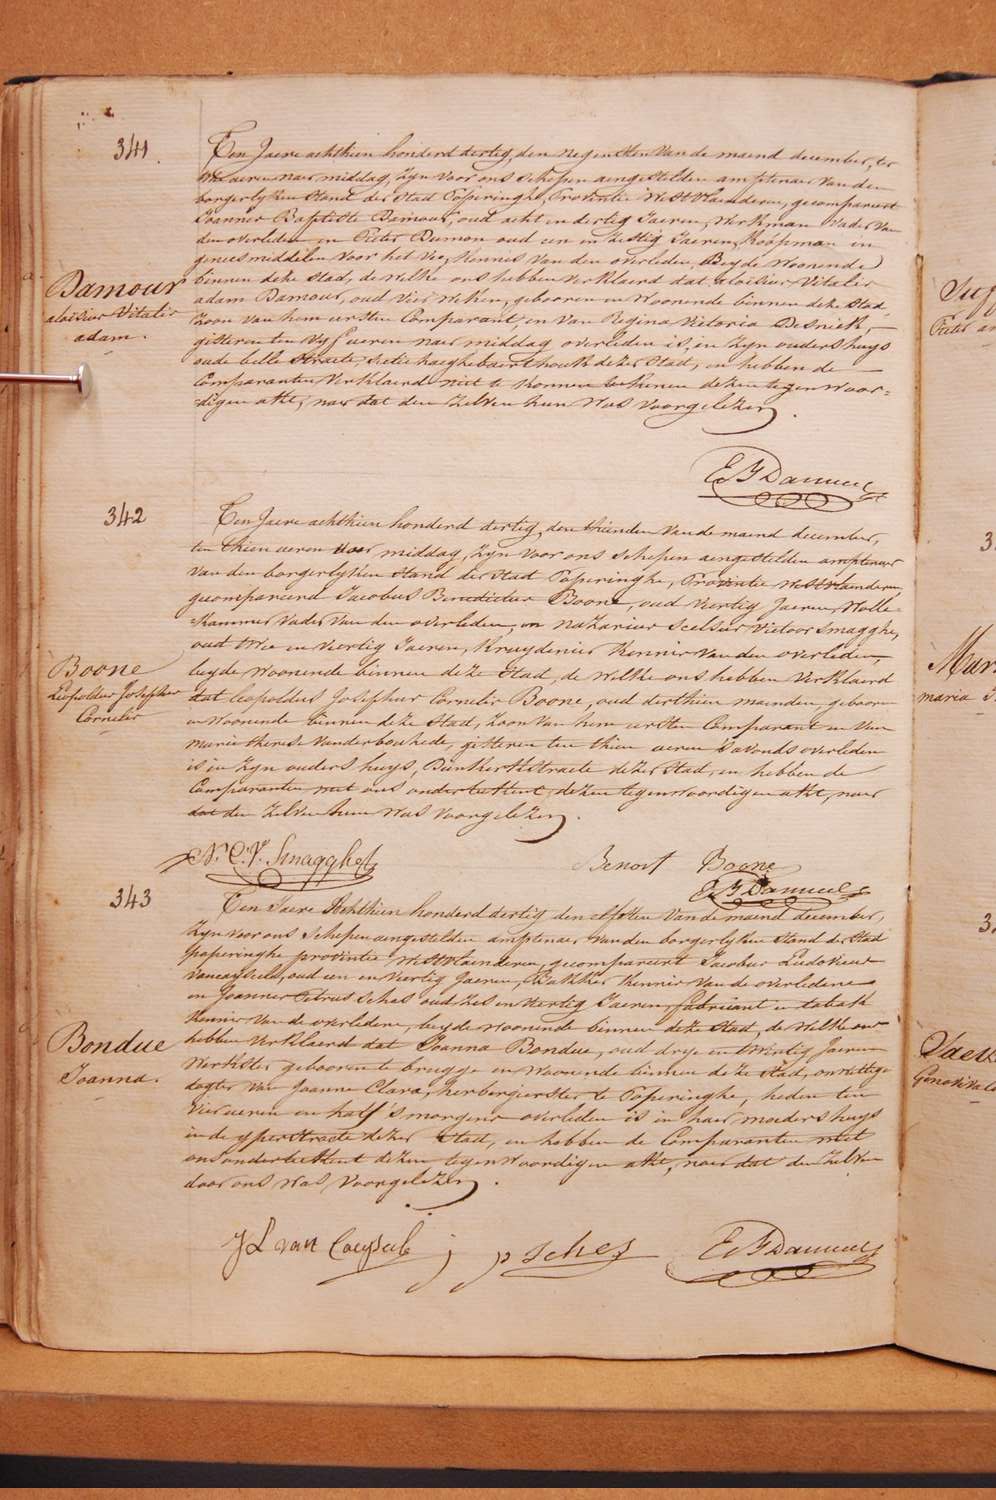 341.
Ten Jaere achthien honderd dertig, den negensten van de maend december, ter
ueren naer middag, Zyn voor ons schepen aengestelden amptenaer van den
borgerlyken stand der Stad Poperinghe, Provintie Westvlaenderen, gecompareert
Joannes Baptiste Damour, oud acht en dertig Jaeren, Werkman Vader van
den overleden en Pieter Dumon oud een en zestig Jaeren, Koopman in
geneesmiddelen voor het Vee, Kennis van den overleden, Beyde Woonende
binnen deze stad, de welke ons hebben verklaerd dat aloisius Vitalis
adam Damour, oud vier weken, gebooren en woonende binnen deze stad,
Zoon van hem eersten Comparant, en van Regina Victoria Desnick,
gisteren ten vyf ueren naer middag overleden is, in Zyn ouders huys
oude belle straete, deser Stad, en hebben de
Comparanten Verklaerd niet te konnen teekenen dezen tegenwoor=
=digen akt, naer dat den Zelven hun was voorgelezen.
Damour
aloisius Vitalis
adam.
342
Ten Jaere achthien honderd dertig, den thienden van de maend december,
ten thien ueren voor middag, Zyn voor ons schepen aengestelden amptenaer
van den borgerlyken stand der Stad Poperinghe, Provintie Westvlaenderen
gecompareerd Jacobus Benedictus Boone, oud veertig Jaeren, Wolle=
=kammer, Vader van den overleden, en Nazarius Celsus Victoor Smagghe,
oud twee en veertig Jaeren, Kruydenier Kennis van den overleden,
beyde woonende binnen deze Stad, de welke ons hebben verklaerd
dat Leopoldus Josephus Cornelis Boone, oud derthien maenden, geboren
en woonende binnen deze Stad, Zoon van hem eersten Comparant en van
marie therese Vanderbouhede, gisteren ten thien ueren s'avonds overleden
is in Zyn ouders huys, Dunkerkstraete dezer Stad, en hebben de
Comparanten met ons onderteekent dezen tegenwoordigen akt, naer
dat den Zelven hun was voorgelezen.
Boone
Leopoldus Josephus
Cornelis
N. C. V. Smagghe
Benoit Boone
343
Ten Jaere Achthien honderd dertig den elfsten van de maend december,
Zyn voor ons schepen aengestelden amptenaer van den borgerlyken Stand der Stad
Poperinghe provintie Westvlaenderen, gecompareert Jacobus Ludovicus
Vancayseele, oud een en veertig Jaeren, Bakker Kennis van de overledene
en Joannes Petrus Sches oud zes en veertig Jaeren, fabricant in tabak
Kennis van de overledene, beyde woonende binnen deze Stad, de welke ons
hebben verklaerd dat Joanna Bondue, oud drye en twintig Jaeren
Werkster gebooren te brugge en woonende binnen deze Stad, onwettige
dogter van Joanne Clara, herbergierster te Poperinghe, heden ten
vier ueren en half s'morgens overleden is in haer moeders huys
in de yperstraete dezer Stad, en hebben de Comparanten met
ons onderteekent dezen tegenwoordigen akt, naer dat den Zelven
door ons was voorgelezen.
Bondue
Joanna.
J L van Cayseele
J p Sches